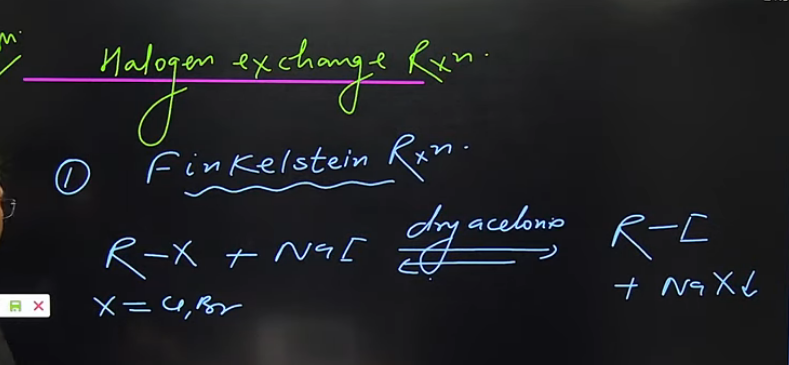 Halogen exchange Rxn.
① Finkelstein Rxn.
R-X + NaI ⇌ dry acetone R-I
+ NaX↓
X = Cl, Br